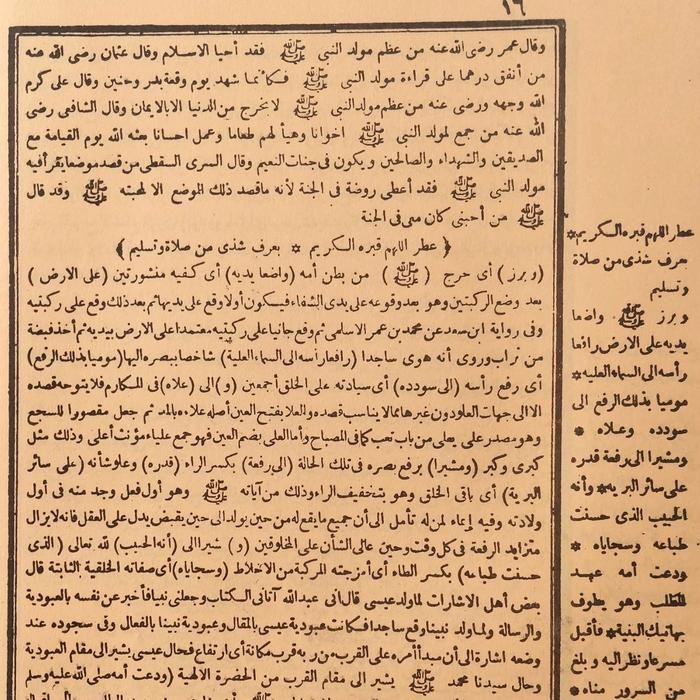 ١٦
وقال عمر رضى الله عنه من عظم مولد النبى ﷺ فقد أحيا الاسلام وقال عثمان رضى الله عنه
من أنفق درهما على قراءة مولد النبى ﷺ فكأنما شهد يوم وقعة بدر وحنين وقال على كرم
الله وجهه ورضى عنه من عظم مولد النبى ﷺ لا يخرج من الدنيا الا بالايمان وقال الشافعى رضى
الله عنه من جمع لمولد النبى ﷺ اخوانا وهيأ لهم طعاما وعمل احسانا بعثه الله يوم القيامة مع
الصديقين والشهداء والصالحين ويكون فى جنات النعيم وقال السرى السقطى من قصد موضعا يقرأ فيه
مولد النبى ﷺ فقد أعطى روضة فى الجنة لأنه ما قصد ذلك الموضع الا لمحبته ﷺ وقد قال
ﷺ من أحبنى كان معى فى الجنة
﴿ عطر اللهم قبره الكريم * بعرف شذى من صلاة وتسليم ﴾
(وبرز) أى خرج (ﷺ) من بطن أمه (واضعا يديه) أى كفيه منشورتين (على الارض)
بعد وضع الركبتين وهو بعد وقوعه على يدى الشفاء فيكون أولا وقع على يديها ثم بعد ذلك وقع على ركبتيه
وفى رواية ابن سعد عن محمد بن عمر الاسلمى ثم وقع جاثيا على ركبتيه معتمدا على الارض بيديه ثم أخذ قبضة
من تراب وروى أنه هوى ساجدا (رافعا رأسه الى السماء العلية) شاخصا ببصره اليها (موميا بذلك الرفع)
أى رفع رأسه (الى سودده) أى سيادته على الخلق أجمعين (و) الى (علاه) فى المكارم فلا يتوجه قصده
الا الى جهات العلو دون غيرها مما لا يناسب قصده والعلا بفتح العين أصله علاء بالمد ثم جعل مقصورا للسجع
وهو مصدر على يعلى من باب تعب كما فى المصباح وأما العلى بضم العين فهو جمع علياء مؤنث أعلى وذلك مثل
كبرى وكبر (ومشيرا) برفع بصره فى تلك الحالة (الى رفعة) بكسر الراء (قدره) وعلو شأنه (على سائر
البرية) أى باقى الخلق وهو بتخفيف الراء وذلك من آياته ﷺ وهو أول فعل وجد منه فى أول
ولادته وفيه ايماء لمن له تأمل الى أن جميع ما يقع له من حين يولد الى حين يقبض يدل على العقل فانه لا يزال
متزايد الرفعة فى كل وقت وحين عالى الشأن على المخلوقين (و) مشيرا الى (أنه الحبيب) لله تعالى (الذى
حسنت طباعه) بكسر الطاء أى أمزجته المركبة من الاخلاط (وسجاياه) أى صفاته الخلقية الثابتة قال
بعض أهل الاشارات لما ولد عيسى قال انى عبد الله آتانى الكتاب وجعلنى نبيا فأخبر عن نفسه بالعبودية
والرسالة ولما ولد نبينا وقع ساجدا فكانت عبودية عيسى بالمقال وعبودية نبينا بالفعال وفى سجوده عند
وضعه اشارة الى أن مبدأ أمره على القرب من ربه قرب مكانة أى ارتفاع فحال عيسى يشير الى مقام العبودية
وحال سيدنا محمد ﷺ يشير الى مقام القرب من الحضرة الالهية (ودعت أمه صلى الله عليه وسلم
عطر اللهم قبره الكريم *
بعرف شذى من صلاة
وتسليم
وبرز ﷺ واضعا
يديه على الارض رافعا
رأسه الى السماء العليه *
موميا بذلك الرفع الى
سودده وعلاه *
ومشيرا الى رفعة قدره
على سائر البريه * وأنه
الحبيب الذى حسنت
طباعه وسجاياه *
ودعت أمه عبد
المطلب وهو يطوف
بهاتيك البنية * فأقبل
مسرعا ونظر اليه وبلغ
من السرور مناه *